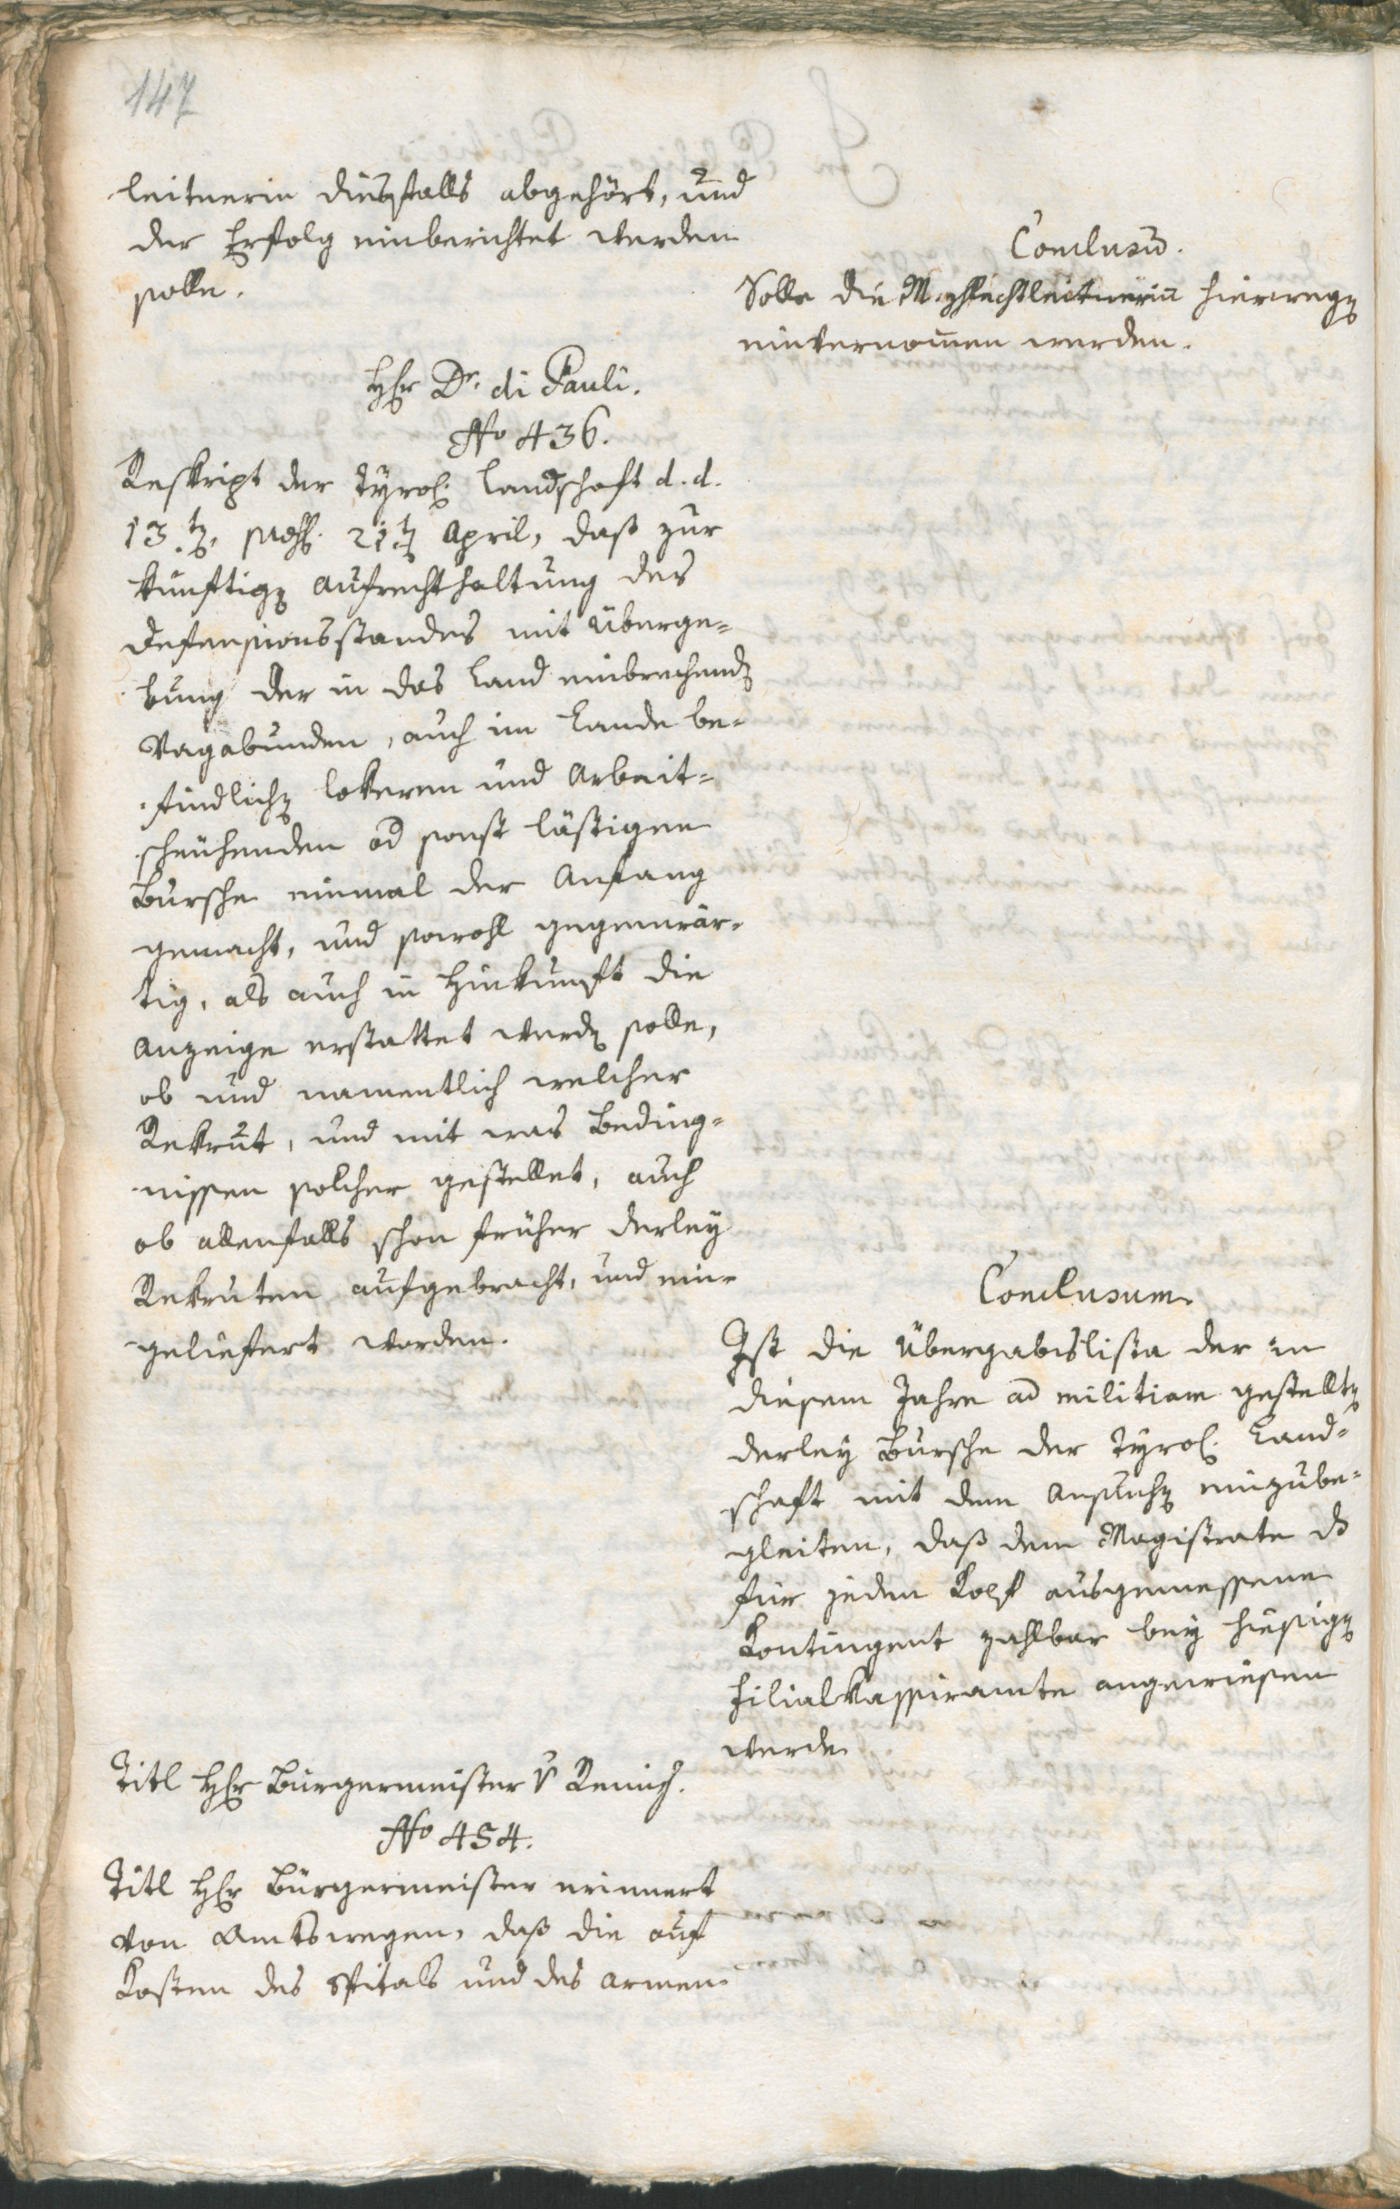 147
leitnerin diesfalls abgehört, und
der Erfolg einberichtet werden
solle.
Conclusū.
Solle die hierweg̃
einvernom̄en werden.
Hr Dr. di Pauli.
No 436.
Reskript der Tyrol. Landschaft d. d.
13.t, 21t April, daß zur
künftig̃ Aufrechthaltung des
Defensionsstandes mit Überge=
bung der in das Land einbrechend̃
Vagabunden, auch im Lande be=
findlich̃ lokeren und Arbeit=
scheuhenden od sonst lästigen
Bursche einmal der Anfang
gemacht, und sowohl gegenwär=
tig, als auch in Hinkunft die
Anzeige erstattet werd̃ solle,
ob und namentlich welcher
Rekrut, und mit was Beding=
nissen solcher gestellet, auch
ob allenfalls schon früher derley
Rekruten aufgebracht, und ein=
geliefert worden.
Conclusum.
Ist die Übergabslista der in
diesem Jahre ad militiam gestellt̃
derley Bursche der Tyrol. Land=
schaft mit dem Ansuch̃ einzube=
gleiten, daß dem Magistrate
für jeden Kopf ausgemessene
Kontingent zahlbar bey hiesig̃
Filialkassieramte angewiesen
werde.
Titl Hr Bürgermeister v Remich.
No 454.
Titl Hr Bürgermeister erinnert
von Amtswegen, daß die auf
Kosten des Spitals und des Armen=